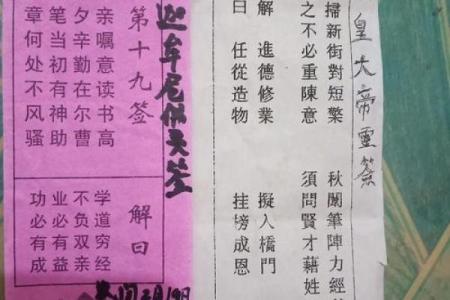 皇大帝靈簽
掃新街對短繁 秋闈筆陣力經
之不必重陳意 須問賢才藉姓
解 進德修業 擬入橋門
曰 任從造物 挂榜成恩
迦牟尼佛灵签
第十九签
亲嘱意读书高
夕辛勤在尔曹
笔当初有神助
章何处不风骚
解曰
学道穷经
不负双亲
业必有益
功必有成